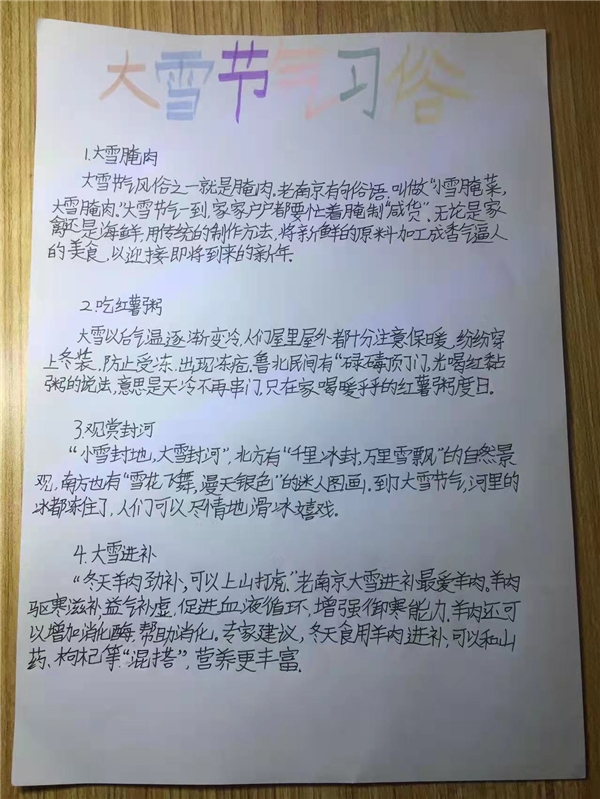 大雪节气习俗
1.大雪腌肉
大雪节气风俗之一就是腌肉.老南京有句俗语,叫做"小雪腌菜,
大雪腌肉."大雪节气一到,家家户户都要忙着腌制"咸货".无论是家
禽还是海鲜,用传统的制作方法,将新鲜的原料加工成香气逼人
的美食,以迎接即将到来的新年.
2.吃红薯粥
大雪以后气温逐渐变冷,人们屋里屋外都十分注意保暖,纷纷穿
上冬装,防止受冻.出现冻疮.鲁北民间有"碌碡顶门,光喝红黏
粥的说法,意思是天冷不再串门,只在家喝暖乎乎的红薯粥度日.
3.观赏封河
"小雪封地,大雪封河",北方有"千里冰封,万里雪飘"的自然景
观,南方也有"雪花飞舞,漫天银色"的迷人图画.到了大雪节气,河里的
冰都冻住了,人们可以尽情地滑冰嬉戏.
4.大雪进补
"冬天羊肉劲补,可以上山打虎."老南京大雪进补最爱羊肉.羊肉
驱寒滋补,益气补虚,促进血液循环,增强御寒能力.羊肉还可
以增加消化酶,帮助消化。专家建议,冬天食用羊肉进补,可以和山
药、枸杞等"混搭",营养更丰富.